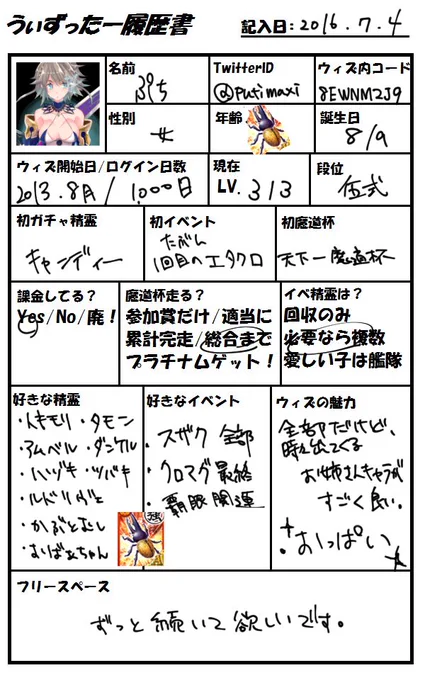 うぃずったー履歴書
記入日:2016.7.4
名前
ぷち
TwitterID
@putimaxi
ウィズ内コード
8EWNM2J9
性別
女
年齢
誕生日
8/9
ウィズ開始日/ログイン日数
2013.8月/1000日
現在
LV.313
段位
伍式
初ガチャ精霊
キャンディー
初イベント
たぶん
1回目のエタクロ
初魔道杯
天下一魔道杯
課金してる?
Yes/No/廃!
魔道杯走る?
参加賞だけ/適当に
累計完走/総合まで
プラチナムゲット!
イベ精霊は?
回収のみ
必要なら複数
愛しい子は艦隊
好きな精霊
・イキモリ・タモン
・アムベル・ダンケル
・ハヅキ・ツバキ
・かぶとむし
・おばあちゃん
好きなイベント
・スザク 全部
・クロマグ最終
・覇眼関連
ウィズの魅力
全部だけど、
時々出てくる
お姉さんキャラが
すごく良い。
おっぱい
フリースペース
ずっと続いて欲しいです。